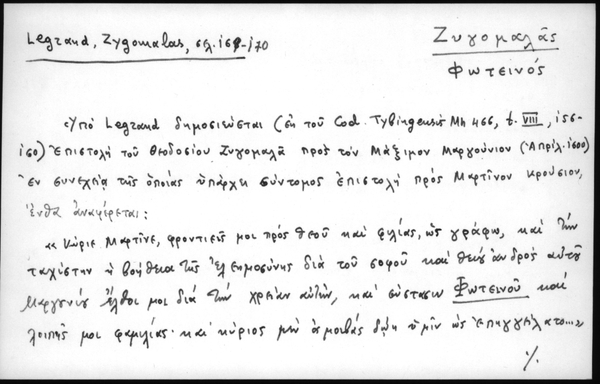 Legrand, Zygomalas, σελ. 169-170
Ζυγομαλᾶς
Φωτεινός
Ὑπό Legrand δημοσιεύεται (ἐκ τοῦ Cod. Tybingensis Mh 466, t. VIII, 156-
160) Ἐπιστολή τοῦ Θεοδοσίου Ζυγομαλᾶ πρός τόν Μάξιμον Μαργούνιον (Ἀπρίλ. 1600)
ἐν συνεχείᾳ τῆς ὁποίας ὑπάρχει σύντομος ἐπιστολή πρός Μαρτῖνον Κρούσιον,
ἔνθα ἀναφέρεται:
« Κύριε Μαρτῖνε, φροντιεῖς μοι πρός θεοῦ καί φιλίας, ὡς γράφω, καί τήν
ταχίστην ἡ βοήθεια τῆς ἐλεημοσύνης διά τοῦ σοφοῦ καί θείου ἀνδρός αὐτοῦ
Μαργουνίου ἔλθοι μοι διά τήν χρείαν αὐτῶν, καί σύστασιν Φωτεινοῦ καί
λοιπῆς μοι φαμιλίας· καί κύριος μέν ἀμοιβάς δῴη ὑμῖν ὡς ἐπηγγείλατο...»
./.